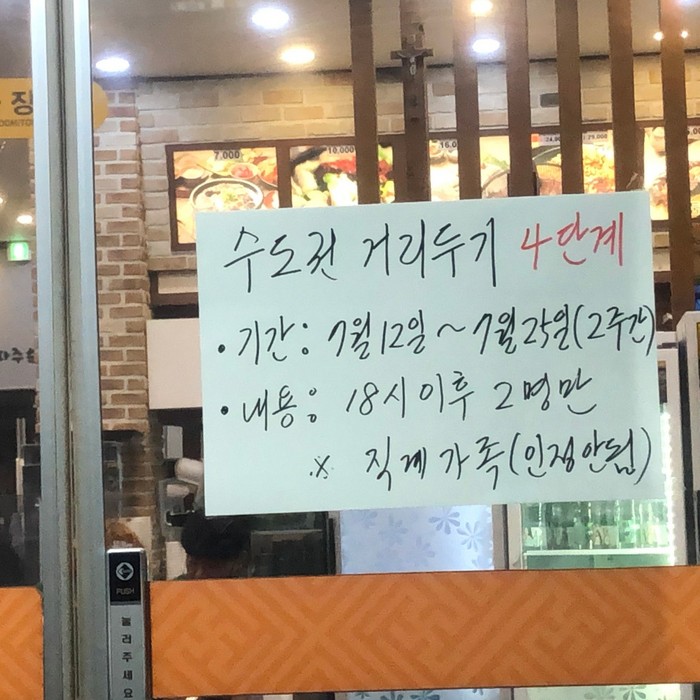 장
7,000
10,000
16,0
수도권 거리두기 4단계
• 기간: 7월12일 ~ 7월25일(2주간)
• 내용: 18시 이후 2명만
※ 직계가족(인정안됨)
PUSH
눌러주세요